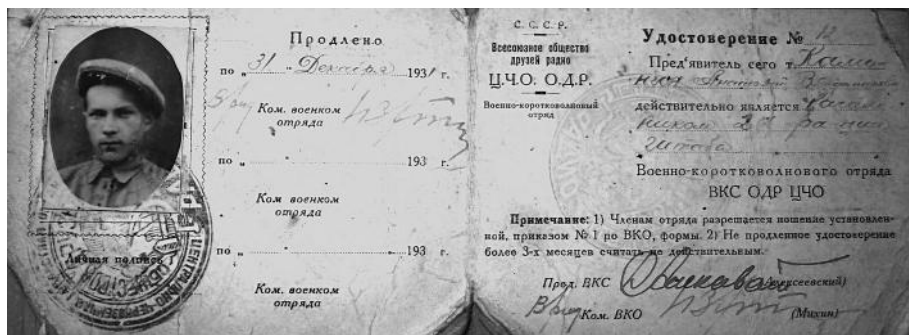 Продлено
по „ 31 " Декабря 1931 г.
Ком. военком
отряда
по „ " 193 г.
Ком. военком
отряда
по „ " 193 г.
Ком. военком
отряда
Личная подпись
С. С. С. Р.
Всесоюзное общество
друзей радио
Ц.Ч.О. О.Д.Р.
Военно-коротковолновый
отряд
Удостоверение № 12
Пред'явитель сего т.
действительно является
штаба
Военно-коротковолнового отряда
ВКС ОДР ЦЧО
Примечание: 1) Членам отряда разрешается ношение установлен-
ной, приказом № 1 по ВКО, формы. 2) Не продленное удостоверение
более 3-х месяцев считать не действительным.
Пред. ВКС (Алексеевский)
Ком. ВКО (Михин)